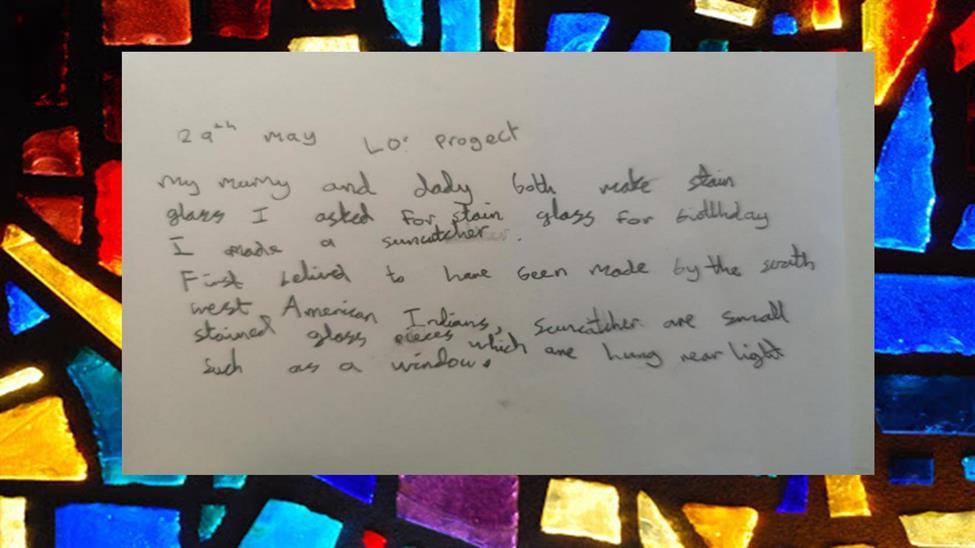 29th may LO: Progect
my mumy and dady both make stain
glass I asked for stain glass for
I made a suncatcher.
First belived to have been made by the south
west American Indians, suncatcher are small
stained glass pieces which are hung near light
such as a window.